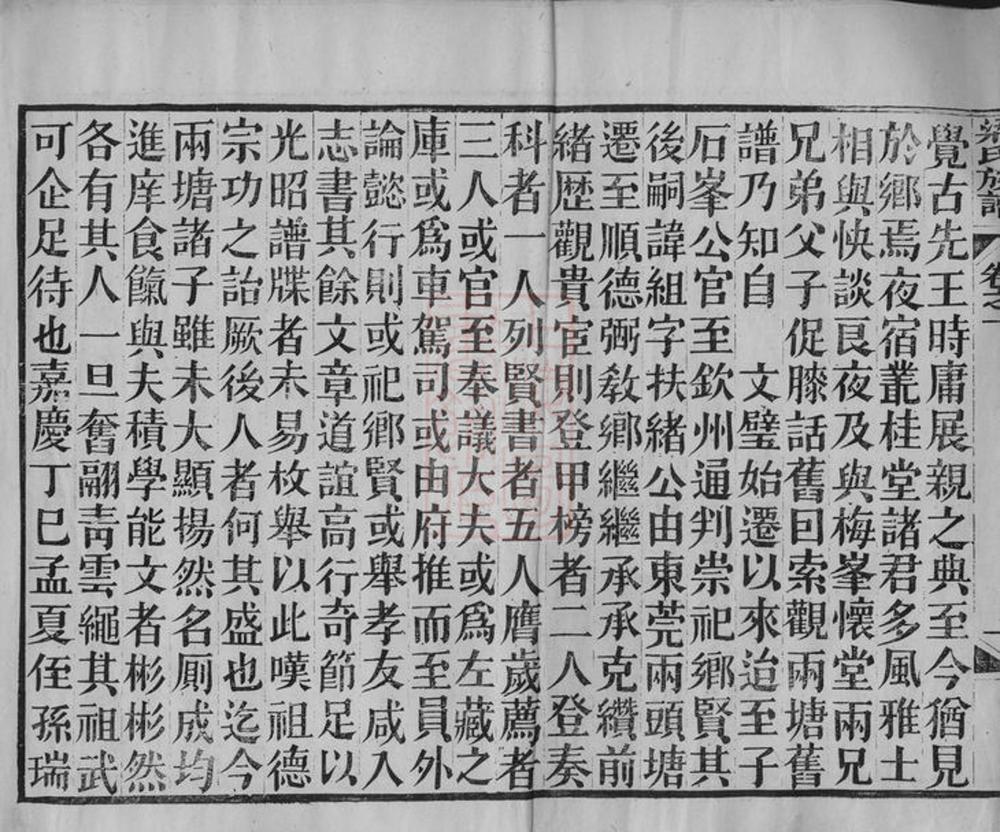 梁氏族譜 卷之一
覺古先王時庸展親之典至今猶見
於鄉焉夜宿叢桂堂諸君多風雅士
相與快談艮夜及與梅峯懷堂兩兄
兄弟父子促膝話舊因索觀兩塘舊
譜乃知自 文璧始遷以來迨至子
石峯公官至欽州通判崇祀鄉賢其
後嗣諱組字扶緒公由東莞兩頭塘
遷至順德弼敎鄉繼繼承承克纘前
緒歷觀貴宦則登甲榜者二人登奏
科者一人列賢書者五人膺歲薦者
三人或官至奉議大夫或爲左藏之
庫或爲車駕司或由府推而至員外
論懿行則或祀鄉賢或舉孝友咸入
志書其餘文章道誼高行奇節足以
光昭譜牒者未易枚舉以此嘆祖德
宗功之詒厥後人者何其盛也迄今
兩塘諸子雖未大顯揚然名厠成均
進庠食餼與夫積學能文者彬彬然
各有其人一旦奮翮青雲繩其祖武
可企足待也嘉慶丁巳孟夏侄孫瑞